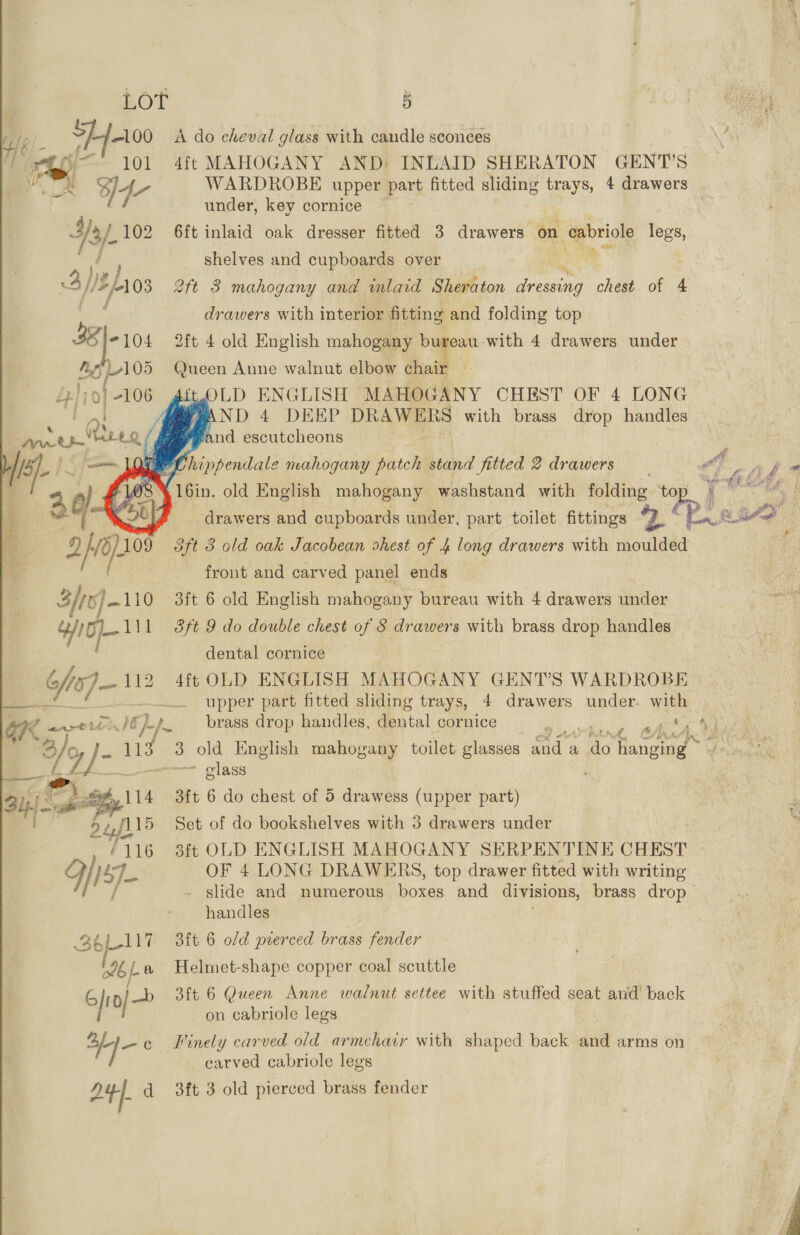 LOT 5
100 A do cheval glass with candle sconces
101 4ft MAHOGANY AND INLAID SHERATON GENT'S
WARDROBE upper part fitted sliding trays, 4 drawers
under, key cornice
102 6ft inlaid oak dresser fitted 3 drawers on cabriole legs,
shelves and cupboards over
103 2ft 3 mahogany and inlaid Sheraton dressing chest of 4
drawers with interior fitting and folding top
104 2ft 4 old English mahogany bureau with 4 drawers under
105 Queen Anne walnut elbow chair
106 4ft OLD ENGLISH MAHOGANY CHEST OF 4 LONG
AND 4 DEEP DRAWERS with brass drop handles
and escutcheons
107 Chippendale mahogany patch stand fitted 2 drawers
108 16in. old English mahogany washstand with folding top
drawers and cupboards under, part toilet fittings
109 3ft 3 old oak Jacobean shest of 4 long drawers with moulded
front and carved panel ends
3/15/- 110 3ft 6 old English mahogany bureau with 4 drawers under
111 3ft 9 do double chest of 8 drawers with brass drop handles
dental cornice
6/15/- 112 4ft OLD ENGLISH MAHOGANY GENT'S WARDROBE
upper part fitted sliding trays, 4 drawers under with
brass drop handles, dental cornice
113 3 old English mahogany toilet glasses and a do hanging
glass
114 3ft 6 do chest of 5 drawess (upper part)
115 Set of do bookshelves with 3 drawers under
116 3ft OLD ENGLISH MAHOGANY SERPENTINE CHEST
9/15/- OF 4 LONG DRAWERS, top drawer fitted with writing
slide and numerous boxes and divisions, brass drop
handles
36/- 117 3ft 6 old pierced brass fender
a Helmet-shape copper coal scuttle
6/10/- b 3ft 6 Queen Anne walnut settee with stuffed seat and back
on cabriole legs
c Finely carved old armchair with shaped back and arms on
carved cabriole legs
24/- d 3ft 3 old pierced brass fender